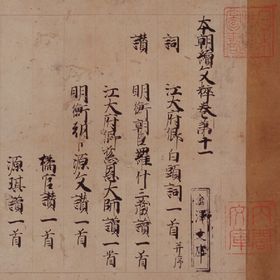 本朝續文粹卷第十一
詞
江大府卿白頭詞一首 并序
讃
明衡朝臣羅什三蔵讃一首
江大府卿慈恩大師讃一首
明衡朝臣 讃一首
讃一首
源 讃一首
文庫